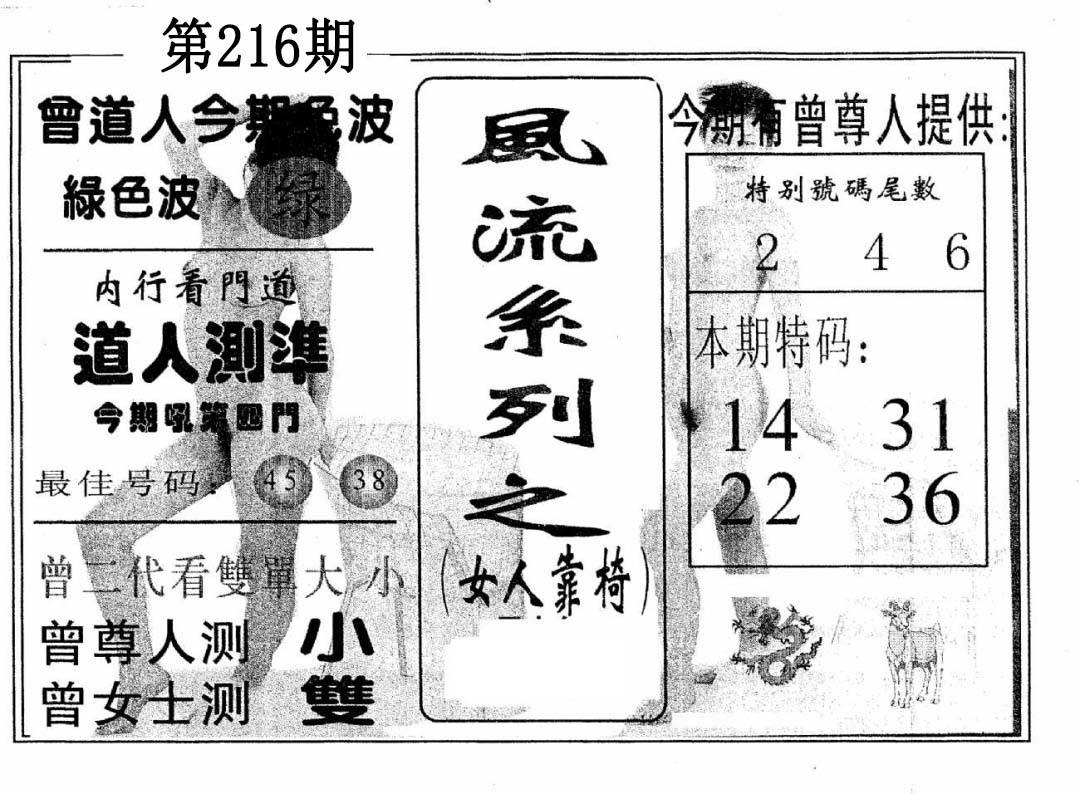 第216期
曾道人今期色波
綠色波 绿
内行看門道
道人測準
今期吼第四門
最佳号码: 45 38
曾二代看雙單大小
曾尊人测 小
曾女士测 雙
風流系列之
(女人靠椅)
今期有曾尊人提供:
特别號碼尾數
2 4 6
本期特码:
14 31
22 36